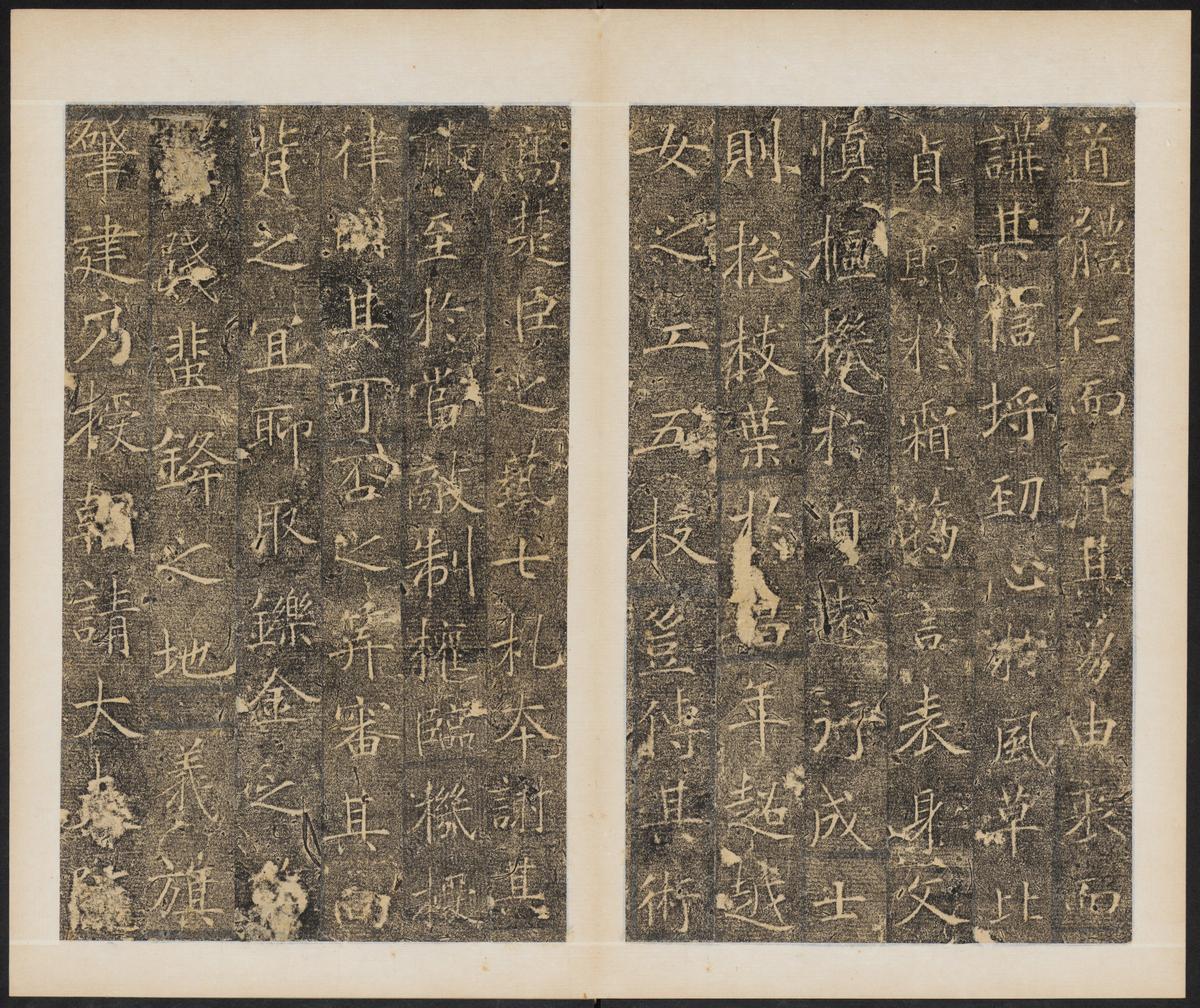 道體仁而其由衷而
謙其信埒劲心於風草比
貞節於霜筠言表身文
慎樞機於迩行成士
則揔枝葉於年超越
女之工五校豈傳其術
高楚臣之藝七札本謝其
至於當敵制權臨機授
律明其可否之筭審其向
背之宜聊取鑠金之
殘蜚鋒之地義旗
肇建乃授朝請大夫